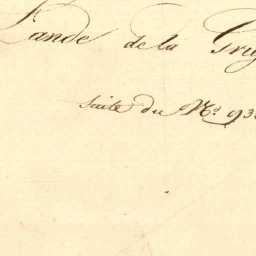 Lande de la Grig
Suite du N.º 93